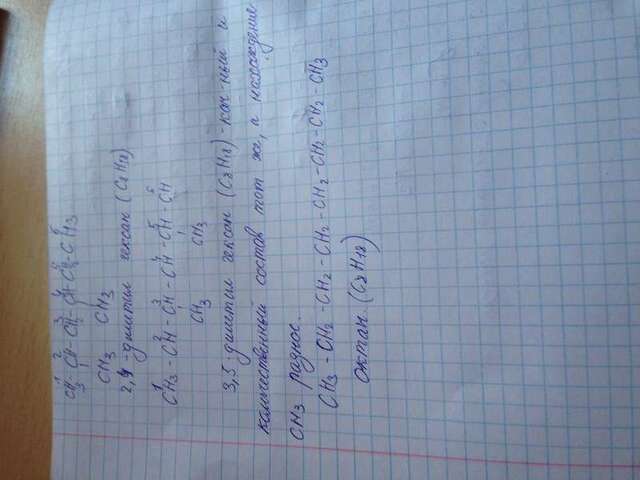 1 2 3 4 5 6
CH3-CH-CH2-CH-CH2-CH3
CH3 CH3
2,4-диметил гексан (C8H18)
1 2 3 4 5 6
CH3-CH-CH-CH-CH-CH
CH3 CH3
3,5-диметил гексан (C8H18)-кач-ный и
количественный состав тот же, а нахождение
CH3 разное.
CH3-CH2-CH2-CH2-CH2-CH2-CH2-CH3
октан. (C8H18)